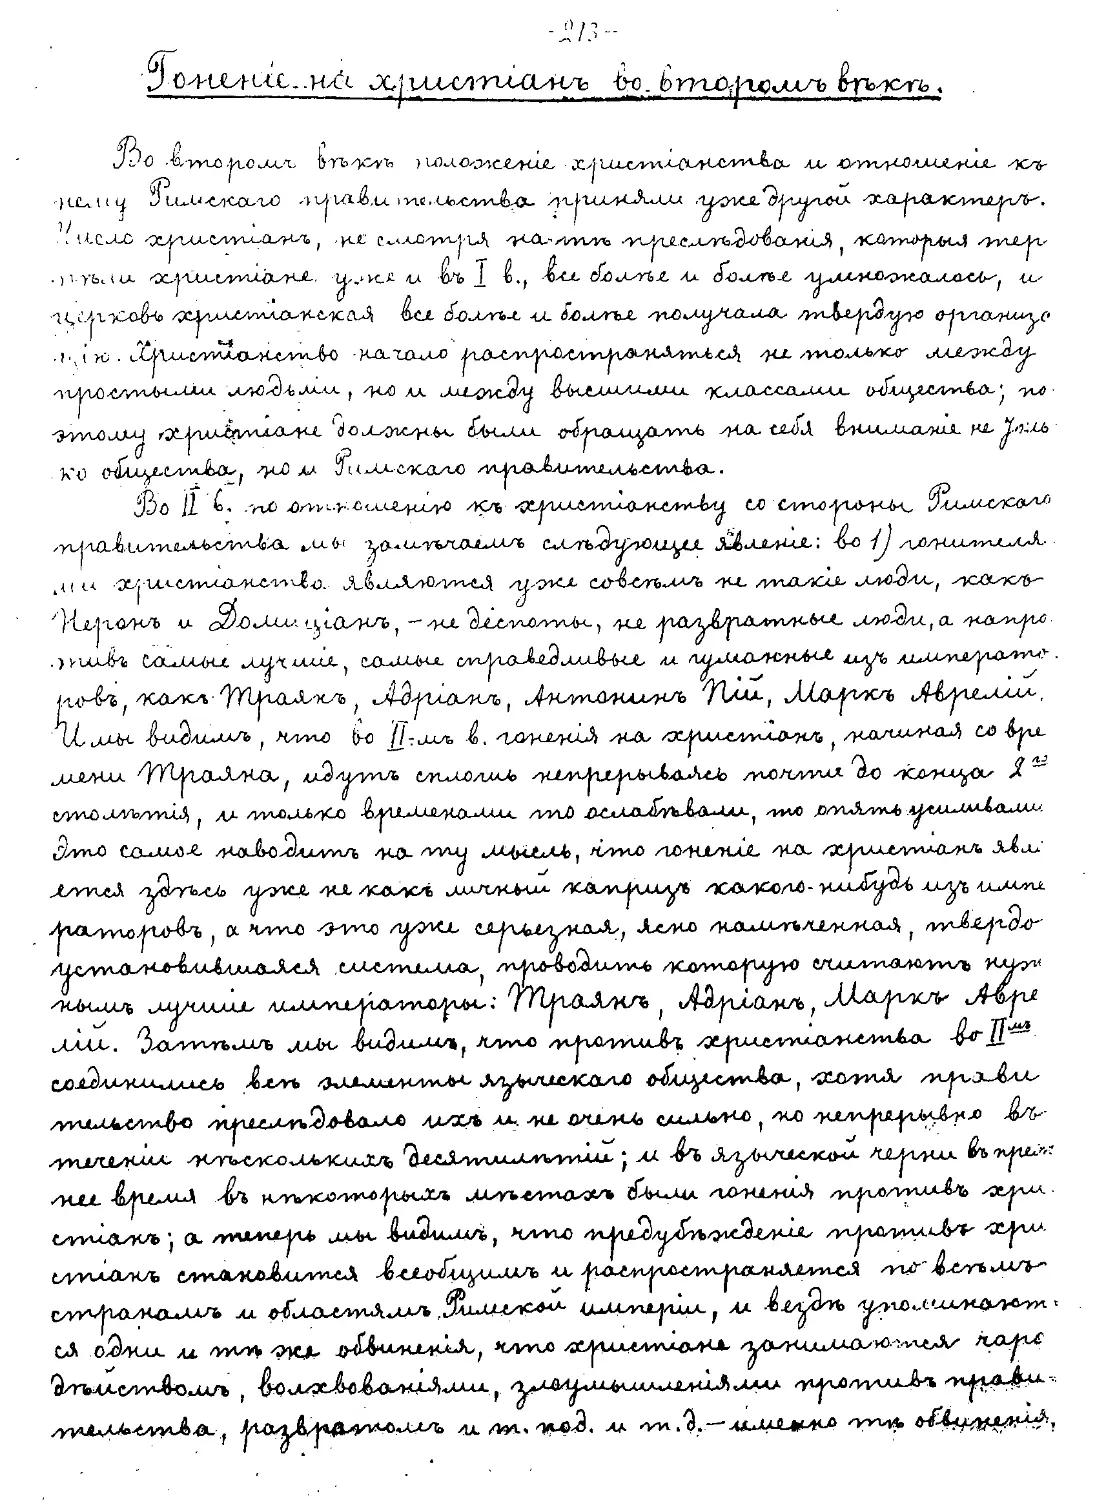 -213-
Гоненіе на христіанъ во второмъ вѣкѣ.
Во второмъ вѣкѣ положеніе христіанства и отношеніе къ
нему Римскаго правительства приняли уже другой характеръ.
Число христіанъ, не смотря на тѣ преслѣдованія, которыя тер
пѣли христіане уже и въ I в., все болѣе и болѣе умножалось, и
церковь христіанская все болѣе и болѣе получала твердую организа
цію. Христіанство начало распространяться не только между
простыми людьми, но и между высшими классами общества; по
этому христіане должны были обращать на себя вниманіе не толь
ко общества, но и Римскаго правительства.
Во II в. по отношенію къ христіанству со стороны Римскаго
правительства мы замѣчаемъ слѣдующее явленіе: во 1) гонителя
ми христіанства являются уже совсѣмъ не такіе люди, какъ
Неронъ и Домиціанъ, – не деспоты, не развратные люди, а напро
тивъ самые лучшіе, самые справедливые и гуманные изъ императо
ровъ, какъ Траянъ, Адріанъ, Антонинъ Пій, Маркъ Аврелій.
И мы видимъ, что во II-мъ в. гоненія на христіанъ, начиная со вре
мени Траяна, идутъ сплошь непрерываясь почти до конца 2го
столѣтія, и только временами то ослабѣвали, то опять усиливали
Это самое наводитъ на ту мысль, что гоненіе на христіанъ явля
ется здѣсь уже не какъ личный капризъ какого-нибудь изъ импе
раторовъ, а что это уже серьезная, ясно намѣченная, твердо
установившаяся система, проводить которую считаютъ нуж
нымъ лучшіе императоры: Траянъ, Адріанъ, Маркъ Авре
лій. Затѣмъ мы видимъ, что противъ христіанства во IIмъ
соединились всѣ элементы языческаго общества, хотя прави
тельство преслѣдовало ихъ и не очень сильно, но непрерывно въ
теченіи нѣсколькихъ десятилѣтій; и въ языческой черни въ преж
нее время въ нѣкоторыхъ мѣстахъ были гоненія противъ хри
стіанъ; а теперь мы видимъ, что предубѣжденіе противъ хри
стіанъ становится всеобщимъ и распространяется по всѣмъ
странамъ и областямъ Римской имперіи, и вездѣ упоминают
ся одни и тѣ же обвиненія, что христіане занимаются чаро
дѣйствомъ, волхвованіями, злоумышленіями противъ прави
тельства, развратомъ и т. под. и т.д. – именно тѣ обвиненія,